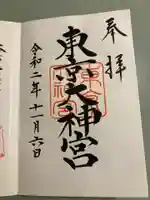 奉拝
東京大神宮
令和二年十一月六日